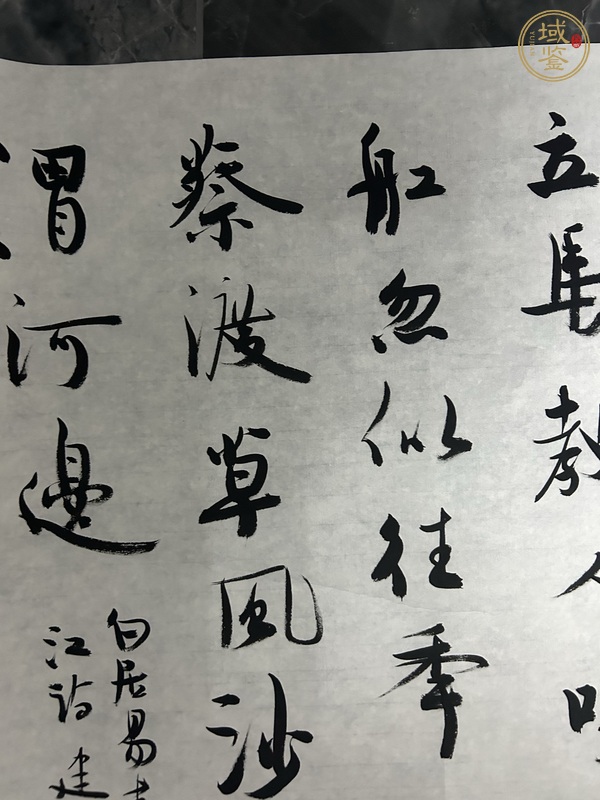 立馬教人
舡忽似往年
蔡渡草風沙
渭河邊
白居易
江詩建
域鉴